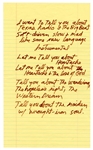 I want To Tell you about
Texas Radio & The Big Beat
Soft-driven, slow & mad
like some new language
Instrumental
Let me Tell you about
heartache
Let me Tell you about
Heartache & the loss of God
Tell you about The wandering
The hopeless night, The
Western Dream
Tell you about The maiden
w/ wrought-iron soul